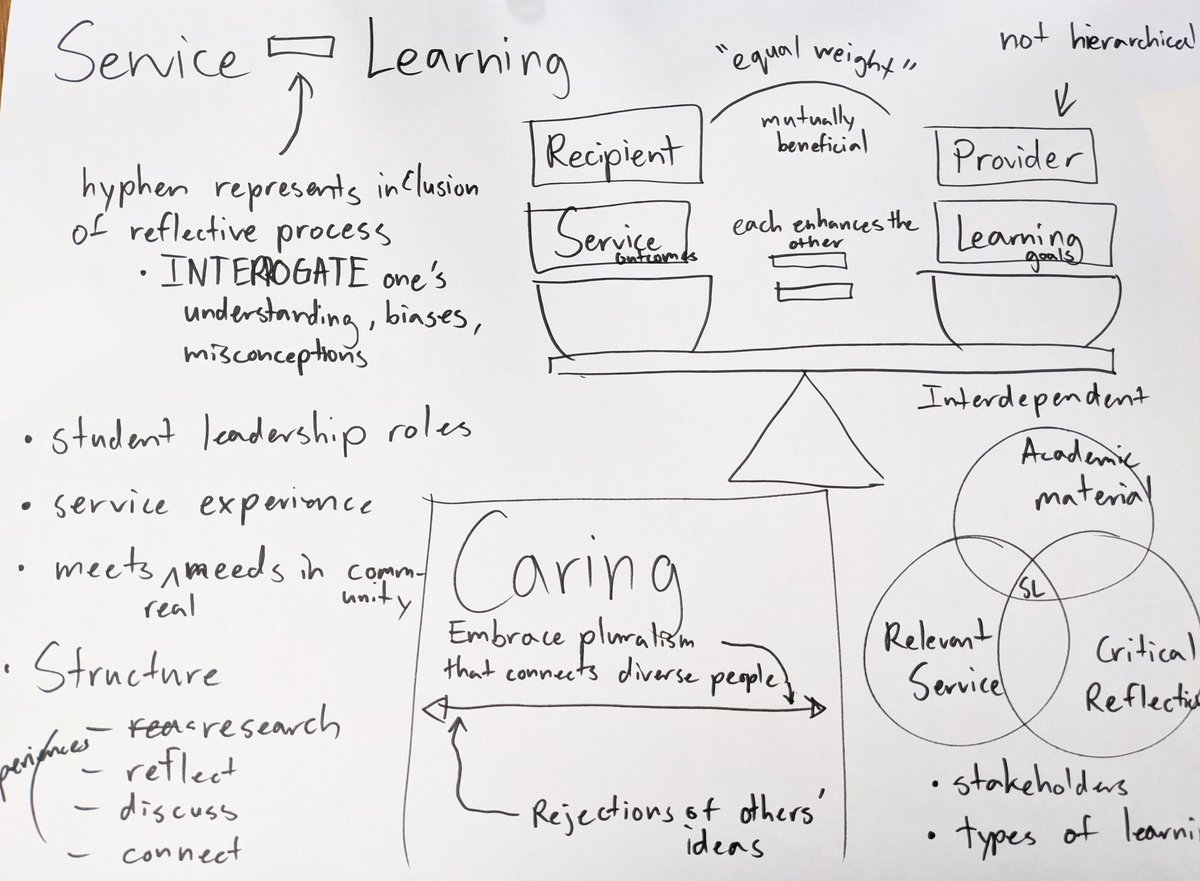 Service - Learning
hyphen represents inclusion
of reflective process
• INTERROGATE one's
understanding, biases,
misconceptions
• student leadership roles
• service experience
• meets ^ needs in comm-
real
unity
• Structure
- research
- reflect
- discuss
- connect
"equal weight"
mutually
beneficial
not hierarchical
Recipient
Provider
Service
outcomes
each enhances the
other
Learning
goals
Interdependent
Caring
Embrace pluralism
that connects diverse people
Rejections of others'
ideas
Academic
material
SL
Relevant
Service
Critical
Reflectio
• stakeholders
• types of learni